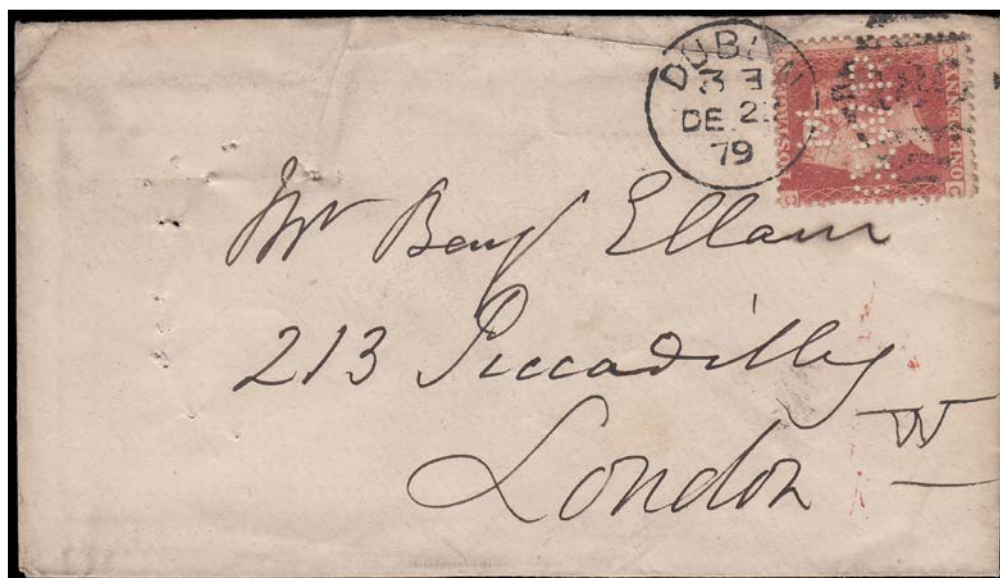 DUBLIN
3 E
DE 2
79
ONE PENNY
POSTAGE
Mr Benj Ellam
213 Piccadilly
London W